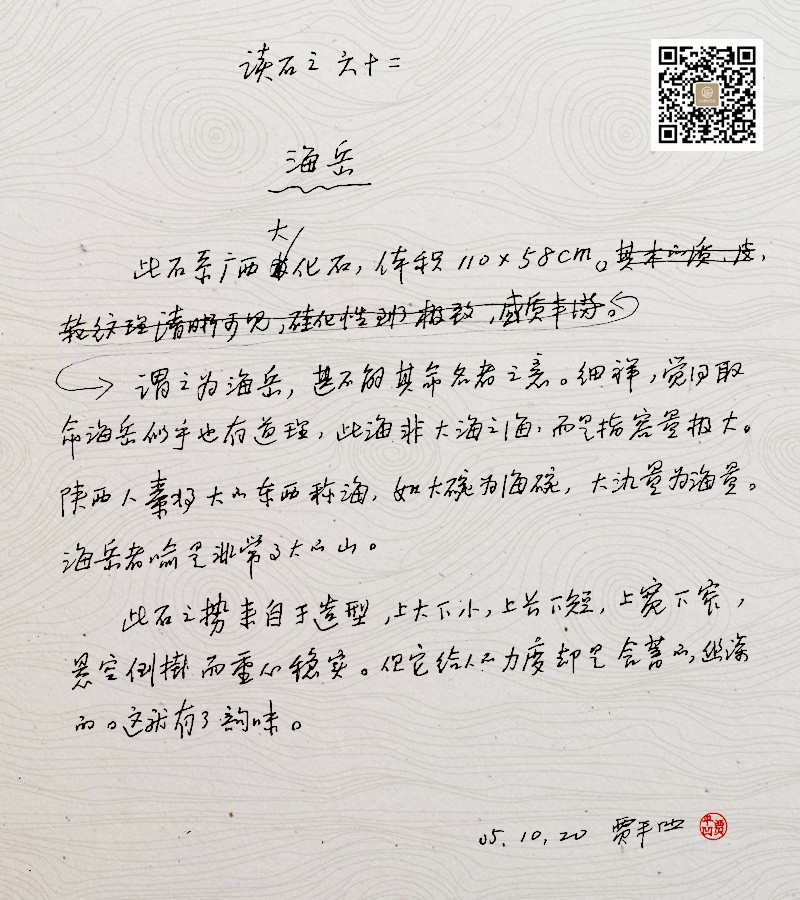 读石之六十二
海岳
大
此石系广西化石，体积110×58cm。其木的质，皮，
软纹理清晰可见，硅化性到了极致，感质丰满。
谓之为海岳，甚不解其命名者之意。细详，觉得取
命海岳似乎也有道理，此海非大海之海，而是指容量极大。
陕西人素将大的东西称海，如大碗为海碗，大氿量为海量。
海岳者喻是非常了大的山。
此石之势来自于造型，上大下小，上长下短，上宽下窄，
悬空倒挂而重心稳实。但它给人的力度却是含蓄的，幽深
的。这就有了韵味。
05.10.20 贾平凹
贾平凹